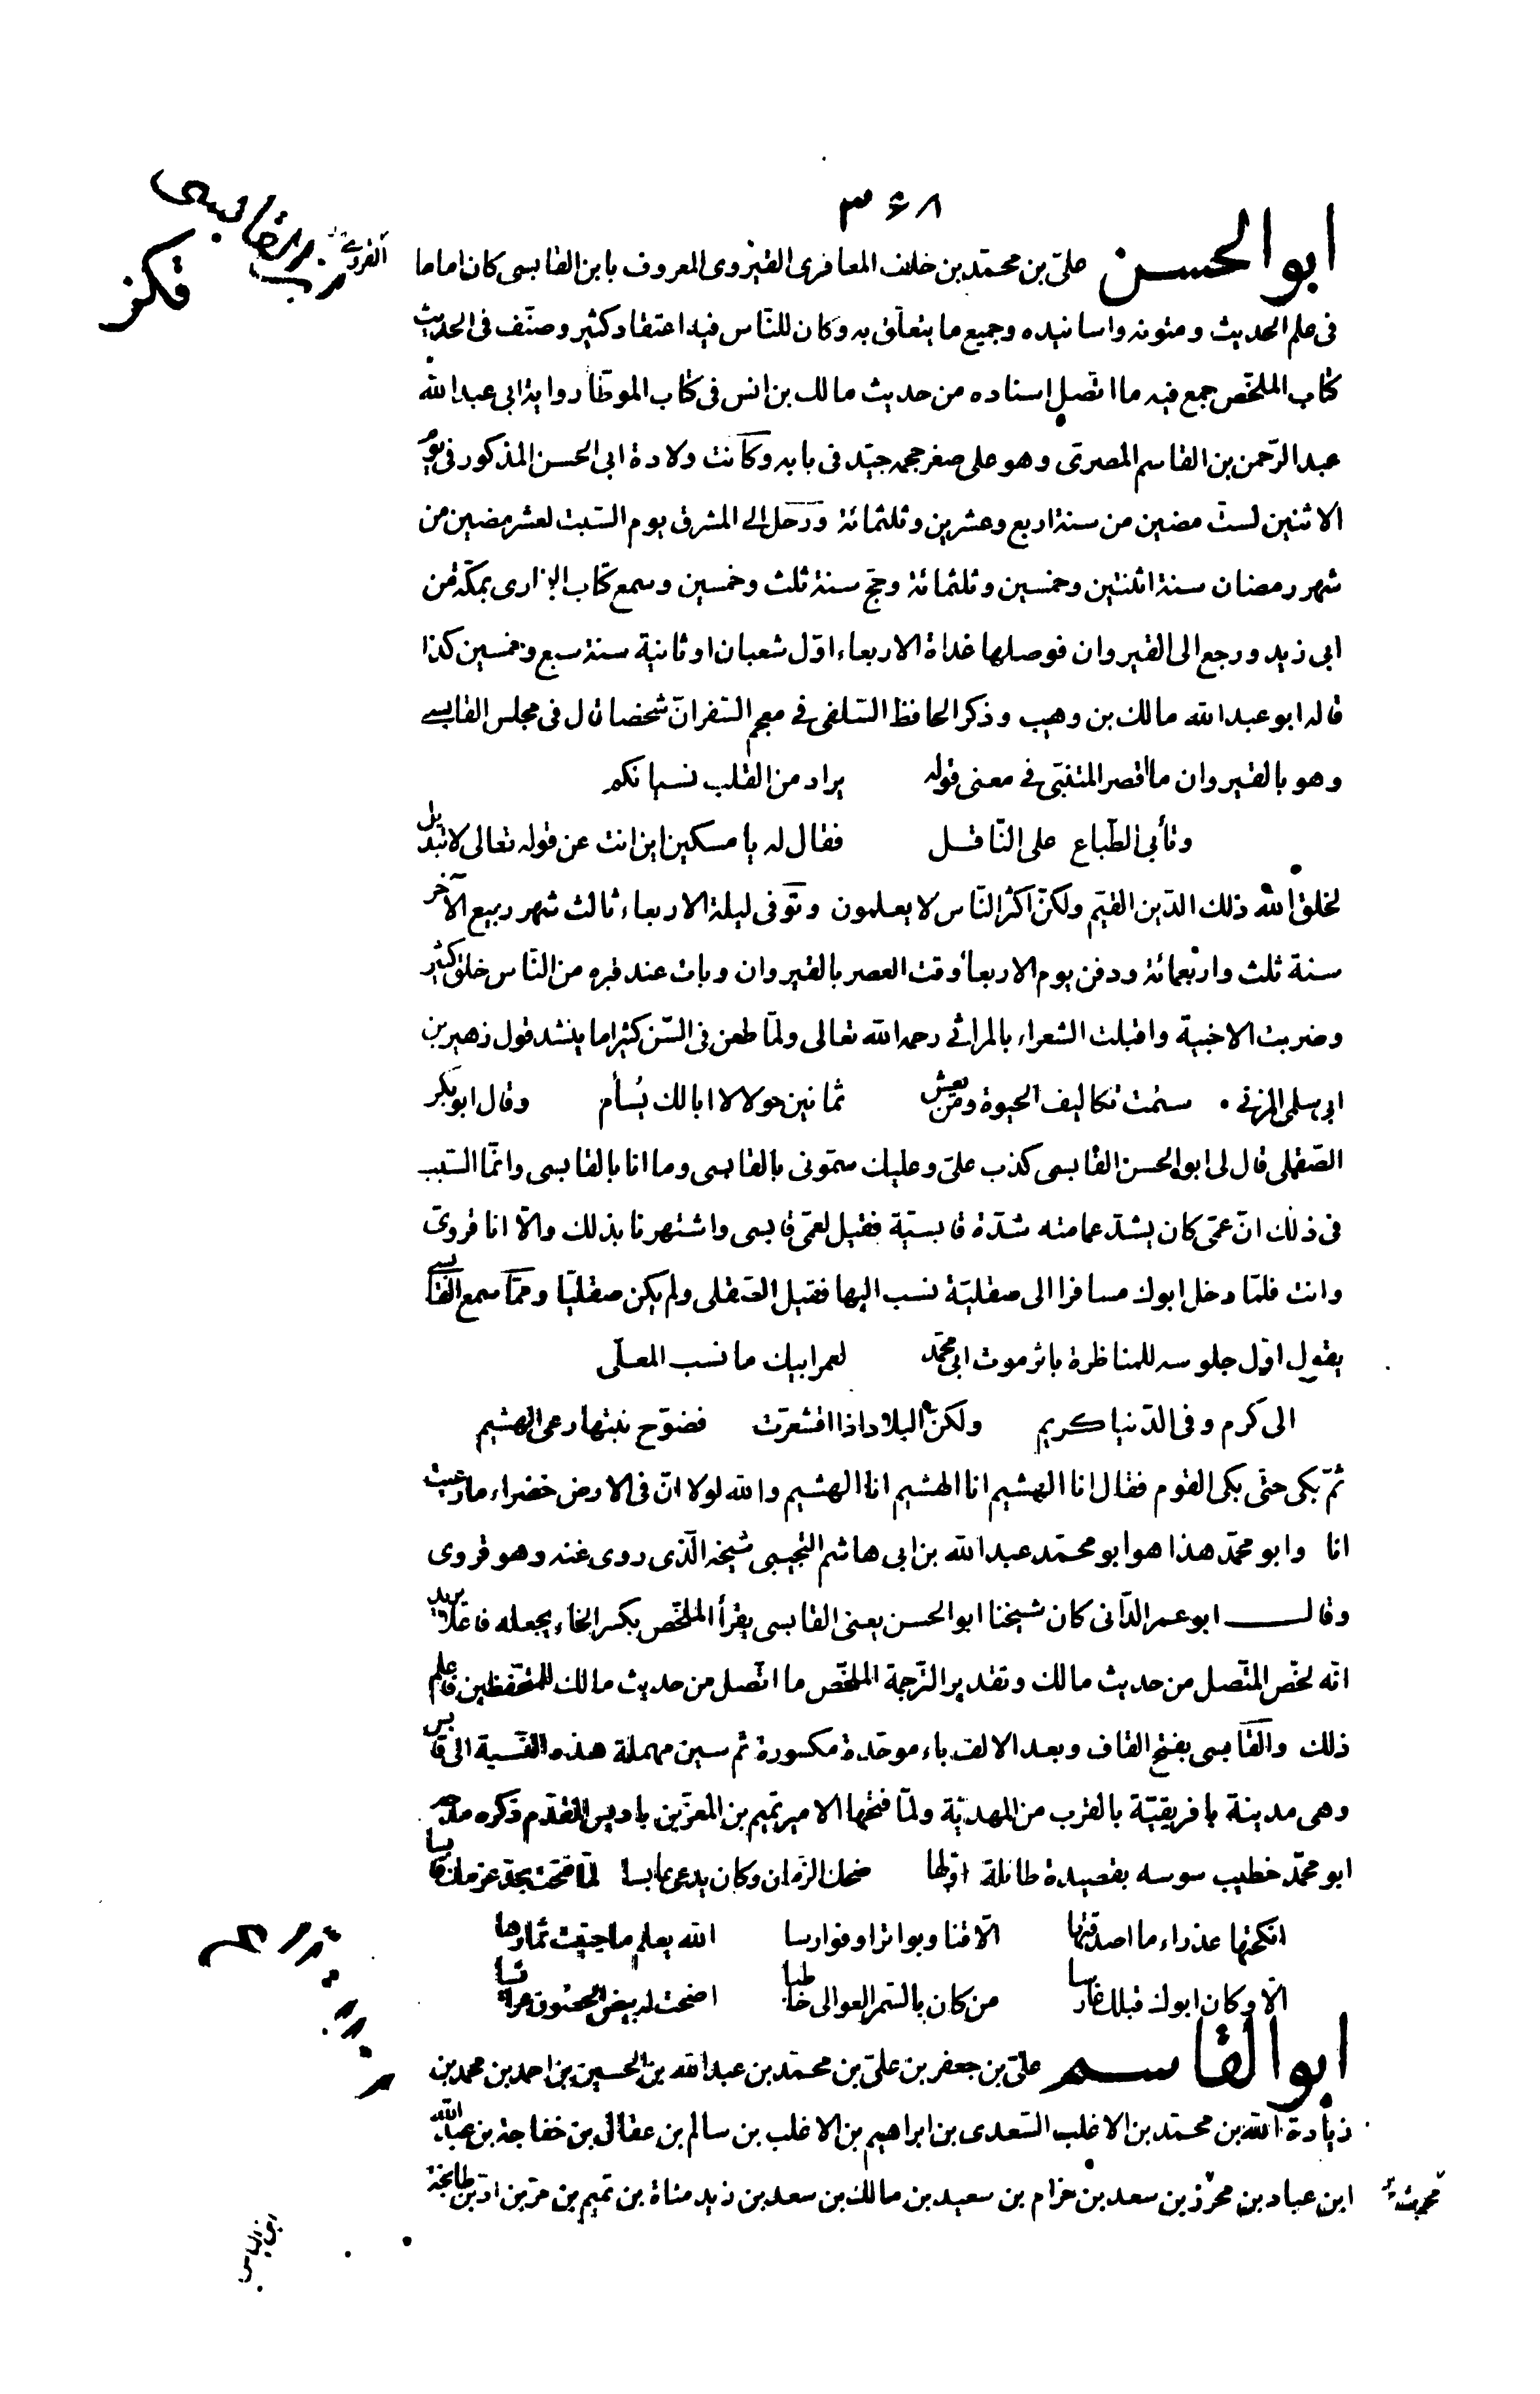 ٣٤٨
ابو الحسن علىّ بن محمّد بن خلف المعافرى القيروى المعروف بابن القابسى كان اماما
فى علم الحديث ومتونه واسانيده وجميع ما يتعلّق به وكان للنّاس فيه اعتقاد كثير وصنّف فى الحديث
كتاب الملخّص جمع فيه ما اتّصل اسناده من حديث مالك بن انس فى كتاب الموطّأ رواية ابى عبد الله
عبد الرّحمن بن القاسم المصرىّ وهو على صغر حجمه جيّد فى بابه وكانت ولادة ابى الحسن المذكور فى يوم
الاثنين لستّ مضين من سنة اربع وعشرين وثلثمائة ورحل الى المشرق يوم السّبت لعشر مضين من
شهر رمضان سنة اثنتين وخمسين وثلثمائة وحجّ سنة ثلث وخمسين وسمع كتاب البخارى بمكّة من
ابى زيد ورجع الى القيروان فوصلها غداة الاربعاء اوّل شعبان او ثانية سنة سبع وخمسين كذا
قاله ابو عبد الله مالك بن وهيب وذكر الحافظ السّلفى فى معجم السّفر انّ شخصا قال فى مجلس القابسى
وهو بالقيروان ما اقصر المتنبّى فى معنى قوله يراد من القلب نسيانكم
وتأبى الطّباع على النّاقل فقال له يا مسكين اين انت عن قوله تعالى لا تبديل
لخلق الله ذلك الدّين القيّم ولكنّ اكثر النّاس لا يعلمون وتوّفى ليلة الاربعاء ثالث شهر ربيع الآخر
سنة ثلث واربعمائة ودفن يوم الاربعاء وقت العصر بالقيروان وبات عند قبره من النّاس خلق كثير
وضربت الاخبية واقبلت الشعراء بالمراثى رحمه الله تعالى ولمّا طعن فى السّن كثيرا ما ينشد قول زهير بن
ابى سلمى المزنى سئمت تكاليف الحيوة ومن يعش ثمانين حولا لا ابالك يسأم وقال ابو بكر
الصّقلى قال لى ابو الحسن القابسى كذب علىّ وعليك سمّونى بالقابسى وما انا بالقابسى وانّما السّبب
فى ذلك انّ عمّى كان يشدّ عمامته شدّة قابسيّة فقيل لعمّى قابسى واشتهرنا بذلك والّا انا قروىّ
وانت فلمّا دخل ابوك مسافرا الى صقليّة نسب اليها فقيل الصّقلى ولم يكن صقليّا وممّا سمع القابسى
يقول اوّل جلوسه للمناظرة باثر موت ابى محمّد لعمر ابيك ما نسب المعلّى
الى كرم وفى الدّنيا كريم ولكنّ البلاد اذا اقشعرّت فضوّح نبتها رعى الهشيم
ثمّ بكى حتى بكى القوم فقال انا الهشيم انا الهشيم انا الهشيم والله لولا انّ فى الارض خضراء ما رعيت
انا وابو محمّد هذا هو ابو محمّد عبد الله بن ابى هاشم التّجيبى شيخه الّذى روى عنه وهو قروى
وقال ابو عمر الدّانى كان شيخنا ابو الحسن يعنى القابسى يقرأ الملخّص بكسر الخاء يجعله فاعلا يريد
انّه لخّص المتّصل من حديث مالك وتقدير التّرجمة الملخّص ما اتّصل من حديث مالك للمتحّفظين فاعلم
ذلك والقابسى بفتح القاف وبعد الالف باء موحّدة مكسورة ثم سين مهملة هذه النّسبة الى قابس
وهى مدينة بافريقيّة بالقرب من المهديّة ولمّا فتحها الامير تميم بن المعزّ بن باديس المقدّم ذكره مدحه
ابو محمّد خطيب سوسه بقصيدة طائلة اوّلها ضحك الزّمان وكان يدعى عابسا لمّا فتحت بحدّ عزمك قابسا
انكحتها عذراء ما اصدقتها الّا قنا وبواترا وفوارسا الله يعلم ما جنيت ثمارها
الّا وكان ابوك قبلك غارسا من كان بالسّمر العوالى خاطبا اضحت له بيض الحصون عرائسا
ابو القاسم علىّ بن جعفر بن علىّ بن محمّد بن عبد الله بن الحسين بن احمد بن محمد بن
زيادة الله بن محمّد بن الاغلب السّعدى بن ابراهيم بن الاغلب بن سالم بن عقال بن خفاجة بن عبد الله
ابن عباد بن محرز بن سعد بن حزام بن سعيد بن مالك بن سعد بن زيد مناة بن تميم بن مرّ بن ادّ بن طابخة